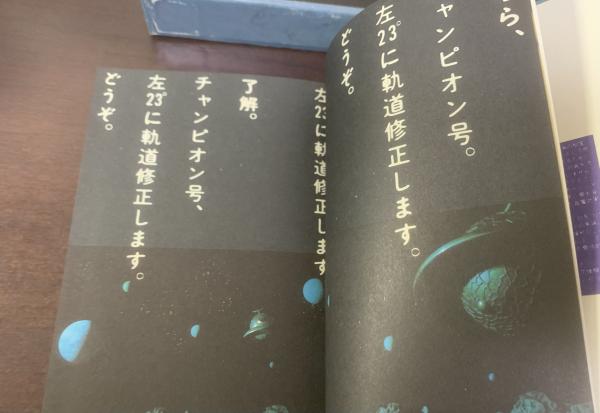 ら、
ャンピオン号。
左23°に軌道修正します。
どうぞ。
左23に軌道修正します
了解。
チャンピオン号、
左23°に軌道修正します。
どうぞ。